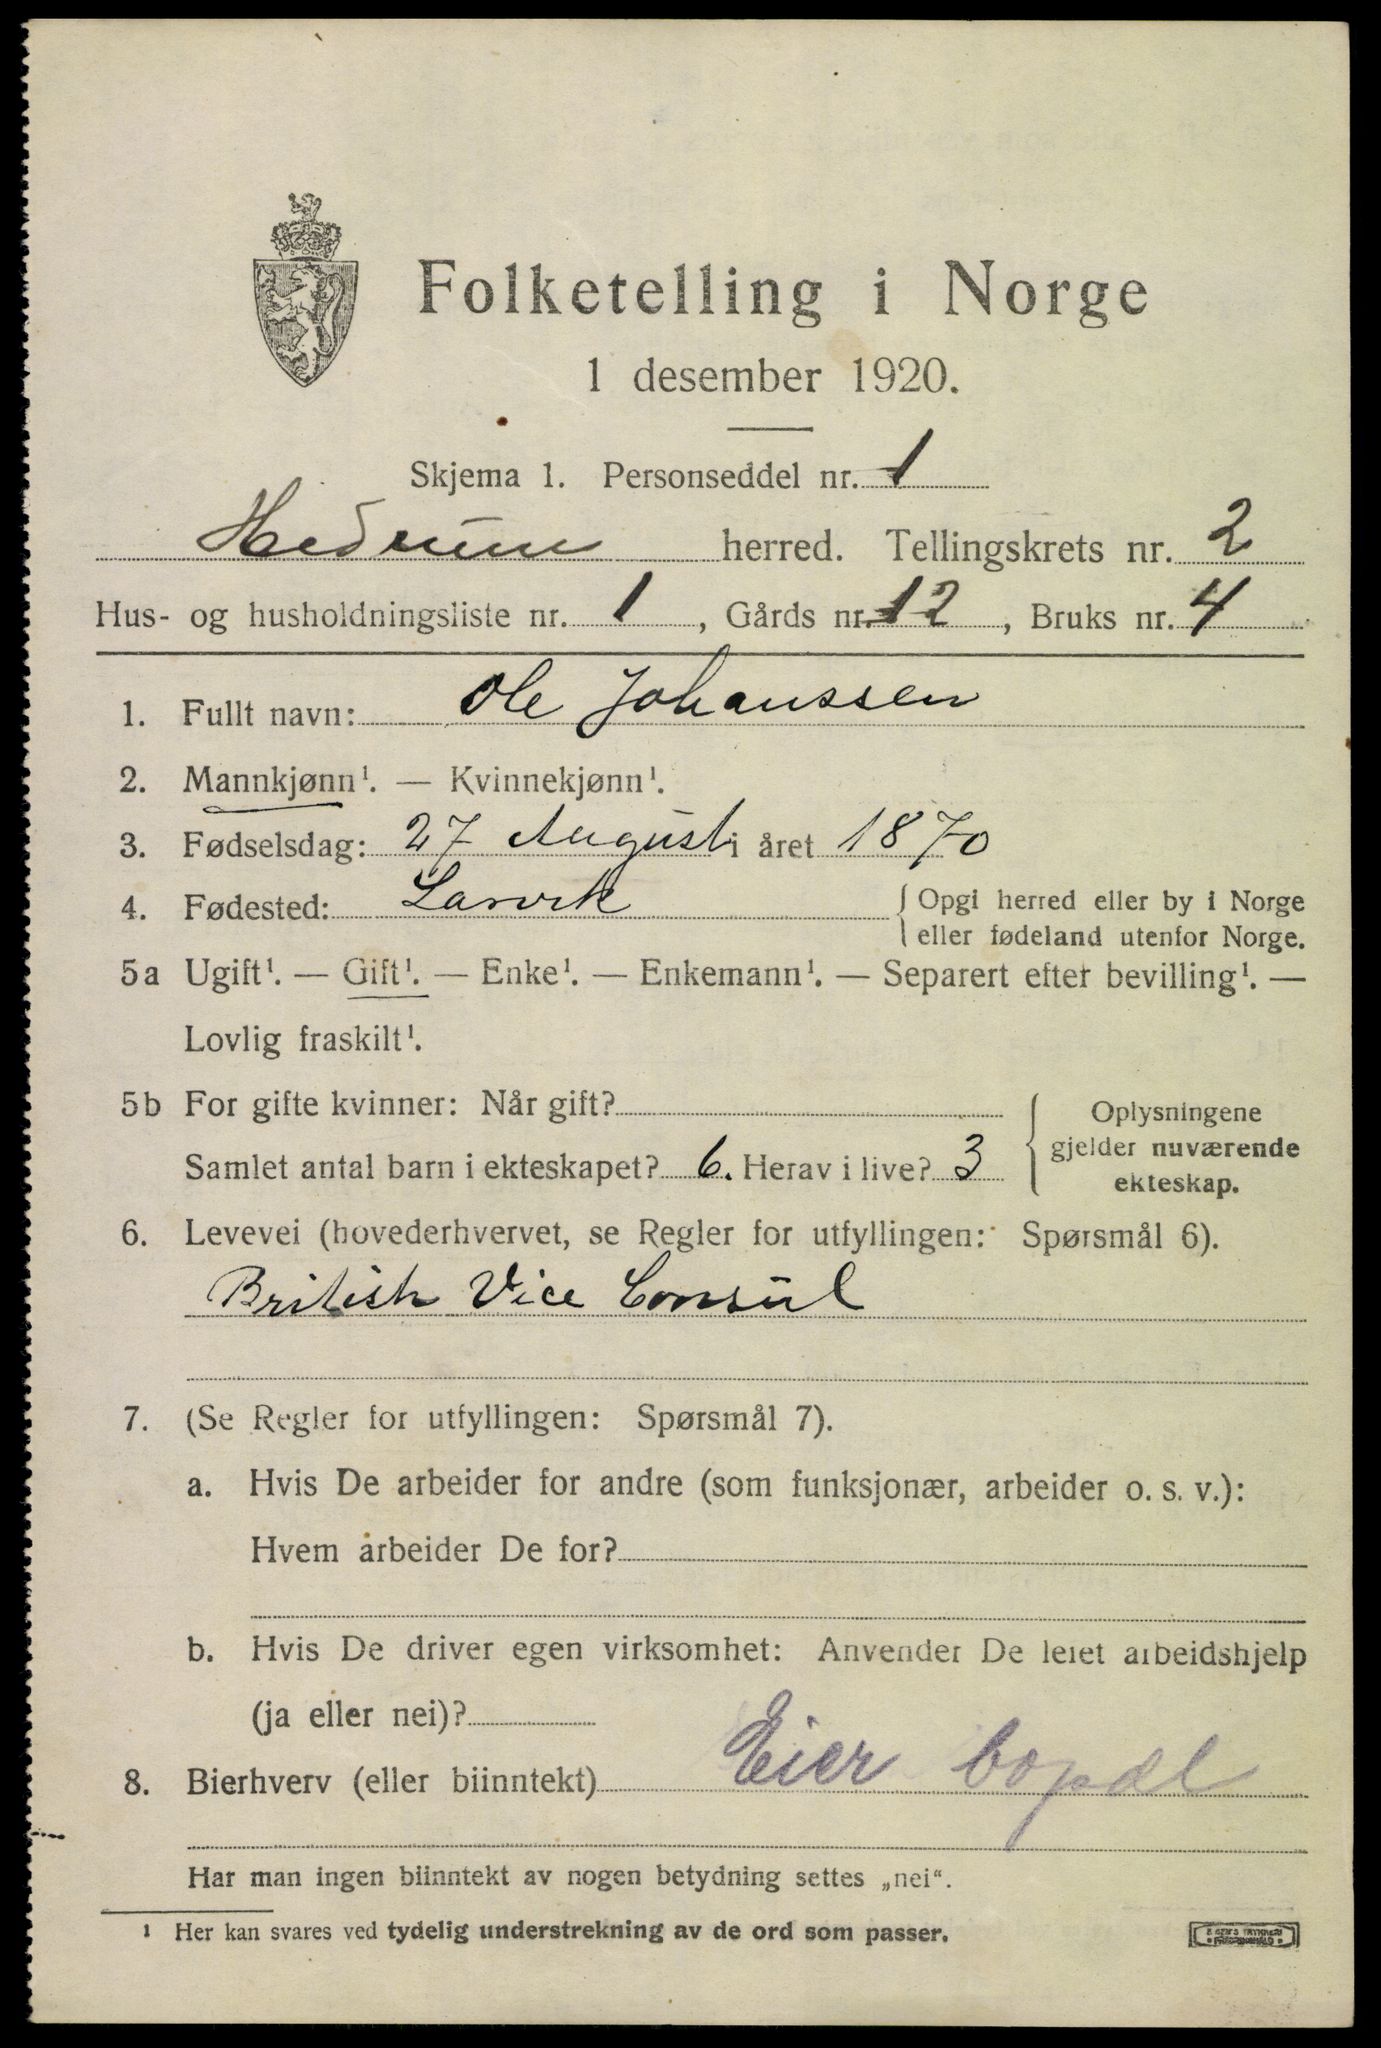 Folketelling i Norge
1 desember 1920.
Skjema 1. Personseddel nr. 1
Hedrum herred. Tellingskrets nr. 2
Hus- og husholdningsliste nr. 1, Gårds nr. 12, Bruks nr. 4
1. Fullt navn: Ole Johanssen
2. Mannkjønn¹. — Kvinnekjønn¹.
3. Fødselsdag: 27 August i året 1870
4. Fødested: Larvik { Opgi herred eller by i Norge
eller fødeland utenfor Norge.
5a Ugift¹. — Gift¹. — Enke¹. — Enkemann¹. — Separert efter bevilling¹. —
Lovlig fraskilt¹.
5b For gifte kvinner: Når gift?
Samlet antal barn i ekteskapet? 6. Herav i live? 3
Oplysningene
gjelder nuværende
ekteskap.
6. Levevei (hovederhvervet, se Regler for utfyllingen: Spørsmål 6).
British Vice Consul
7. (Se Regler for utfyllingen: Spørsmål 7).
a. Hvis De arbeider for andre (som funksjonær, arbeider o. s. v.):
Hvem arbeider De for?
b. Hvis De driver egen virksomhet: Anvender De leiet arbeidshjelp
(ja eller nei)?
8. Bierhverv (eller biinntekt) Eier
Har man ingen biinntekt av nogen betydning settes „nei“.
¹ Her kan svares ved tydelig understrekning av de ord som passer.